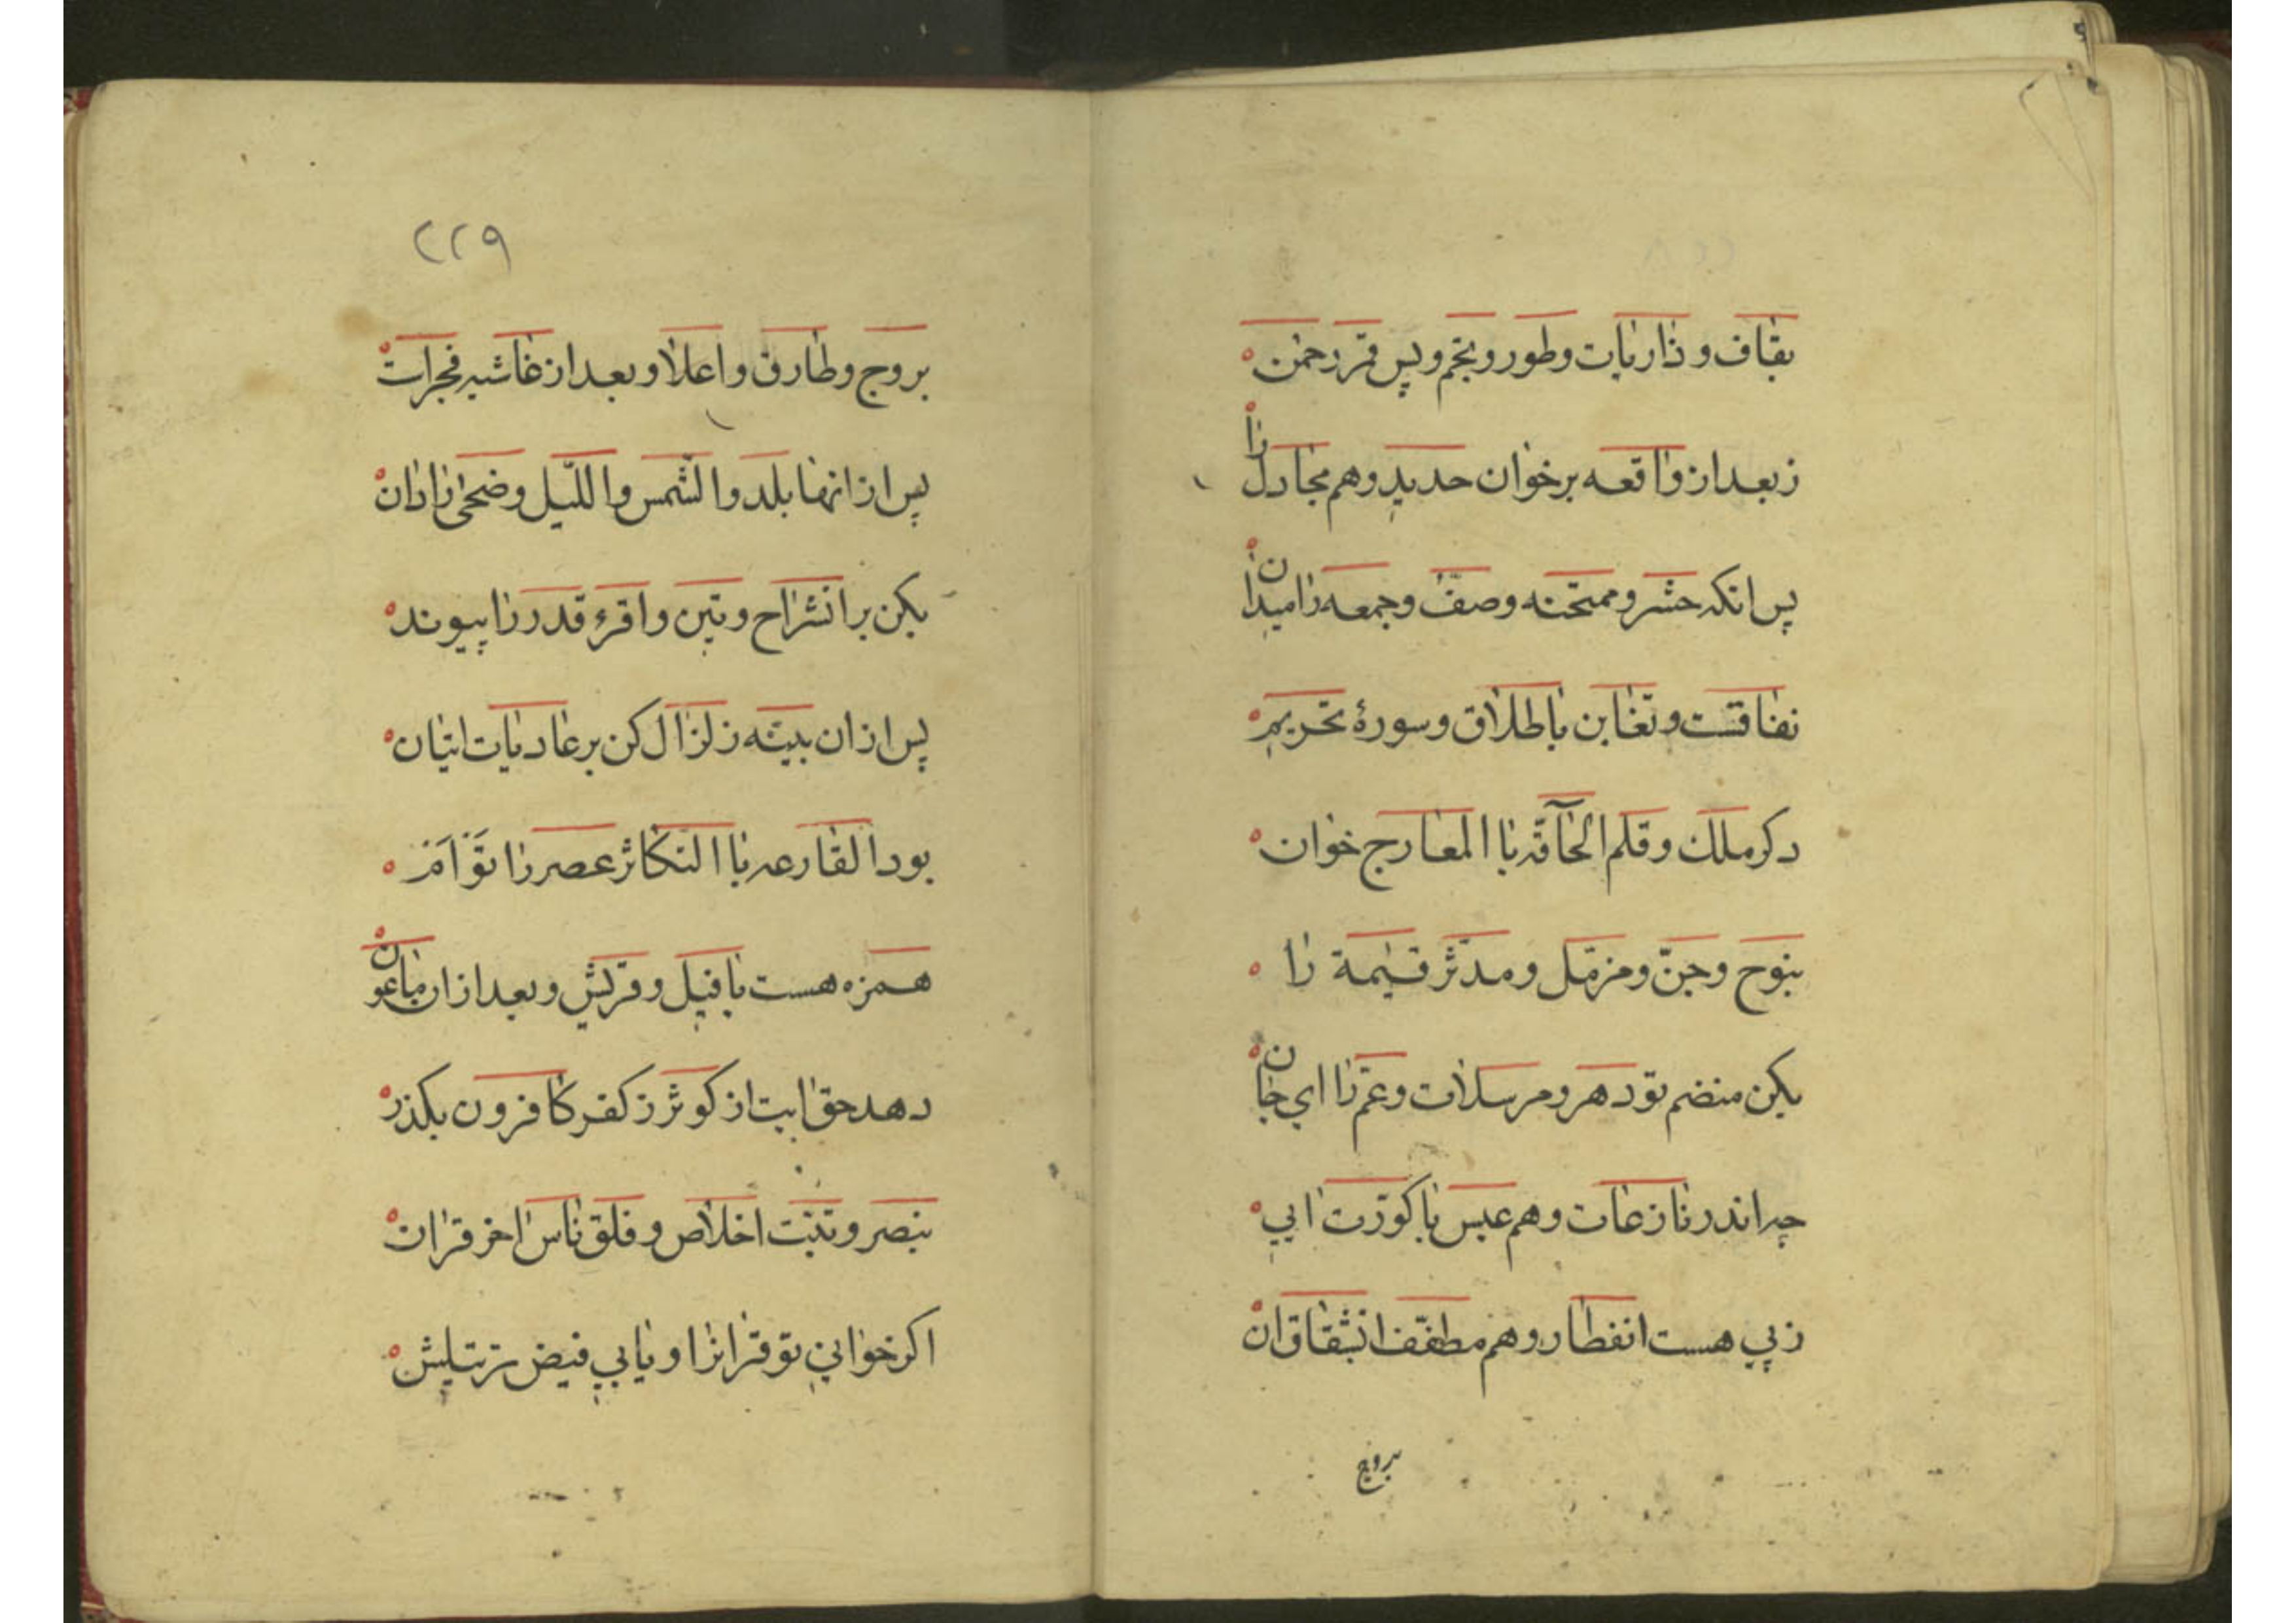 بقاف و ذاریات و طور و نجم و پس قمر رحمن
ز بعد از واقعه برخوان حدید و هم مجادل را
پس انکه حشر و ممتحنه و صف و جمعه را میدان
نفاقست و تغابن با طلاق و سورهٔ تحریم
دکر ملک و قلم الحآقه با المعارج خوان
بنوح و جنّ و مزمّل و مدّثر قیٰمة را
بکن منضم تو دهر و مرسلات و عمّ را ای جان
چه اندر نازعات و هم عبس با کوّرت ایی
ز پی هست انفطار و هم مطفّف انشقاق ان
بروج
٢٢٩
بروج و طارق و اعلا و بعد از غاشیه فجرات
پس از انها بلد و الشّمس و اللّیل و ضحی را دان
بکن بر انشراح و تین و اقرء قدر را پیوند
پس از ان بیّنه زلزال کن بر عادیات اتیان
بود القارعه با التکاثر عصر را توَاَم
همزه هست با فیل و قریش و بعد از ان ماعون
دهد حق ابت از کوثر ز کفر کافرون بکذر
بنصر و تبّت اخلاص و فلق ناس اخر قران
اکر خوانی تو قرانرا و یابی فیض ترتیلش